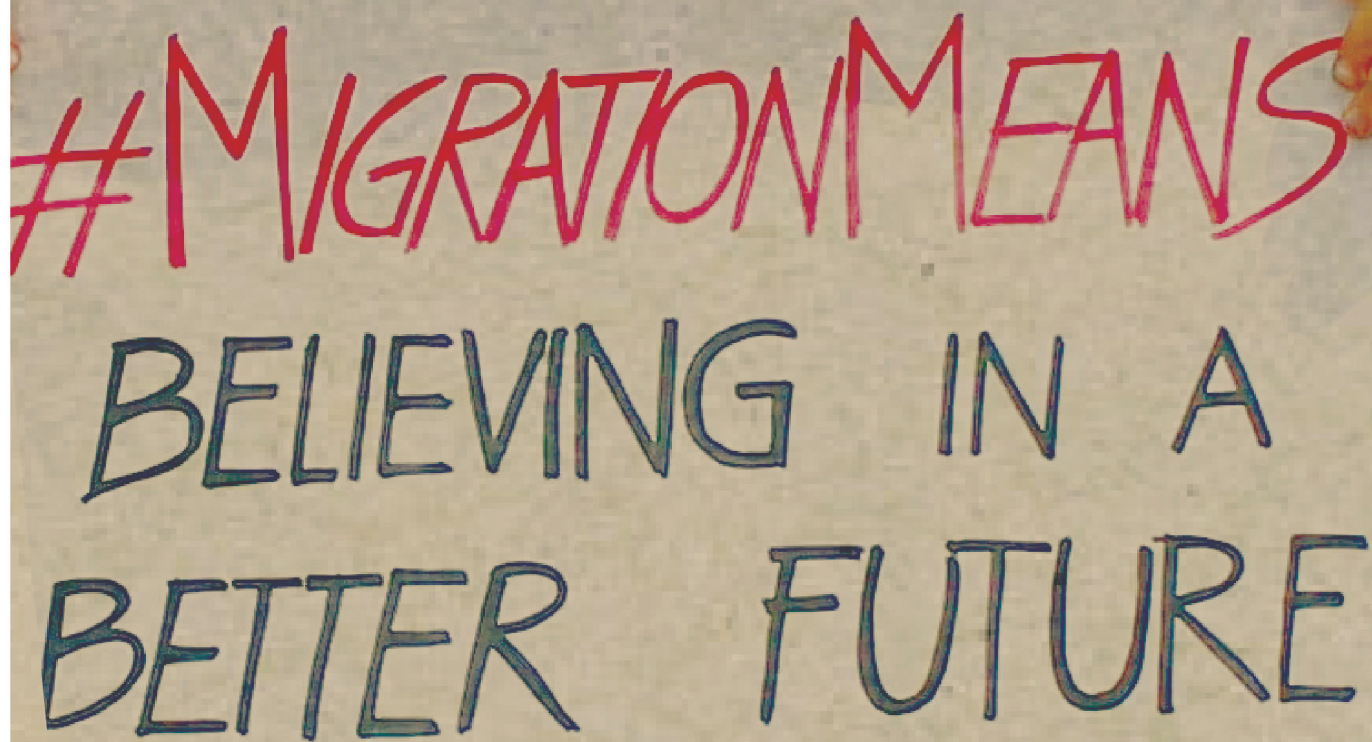 #MIGRATIONMEANS
BELIEVING IN A
BETTER FUTURE